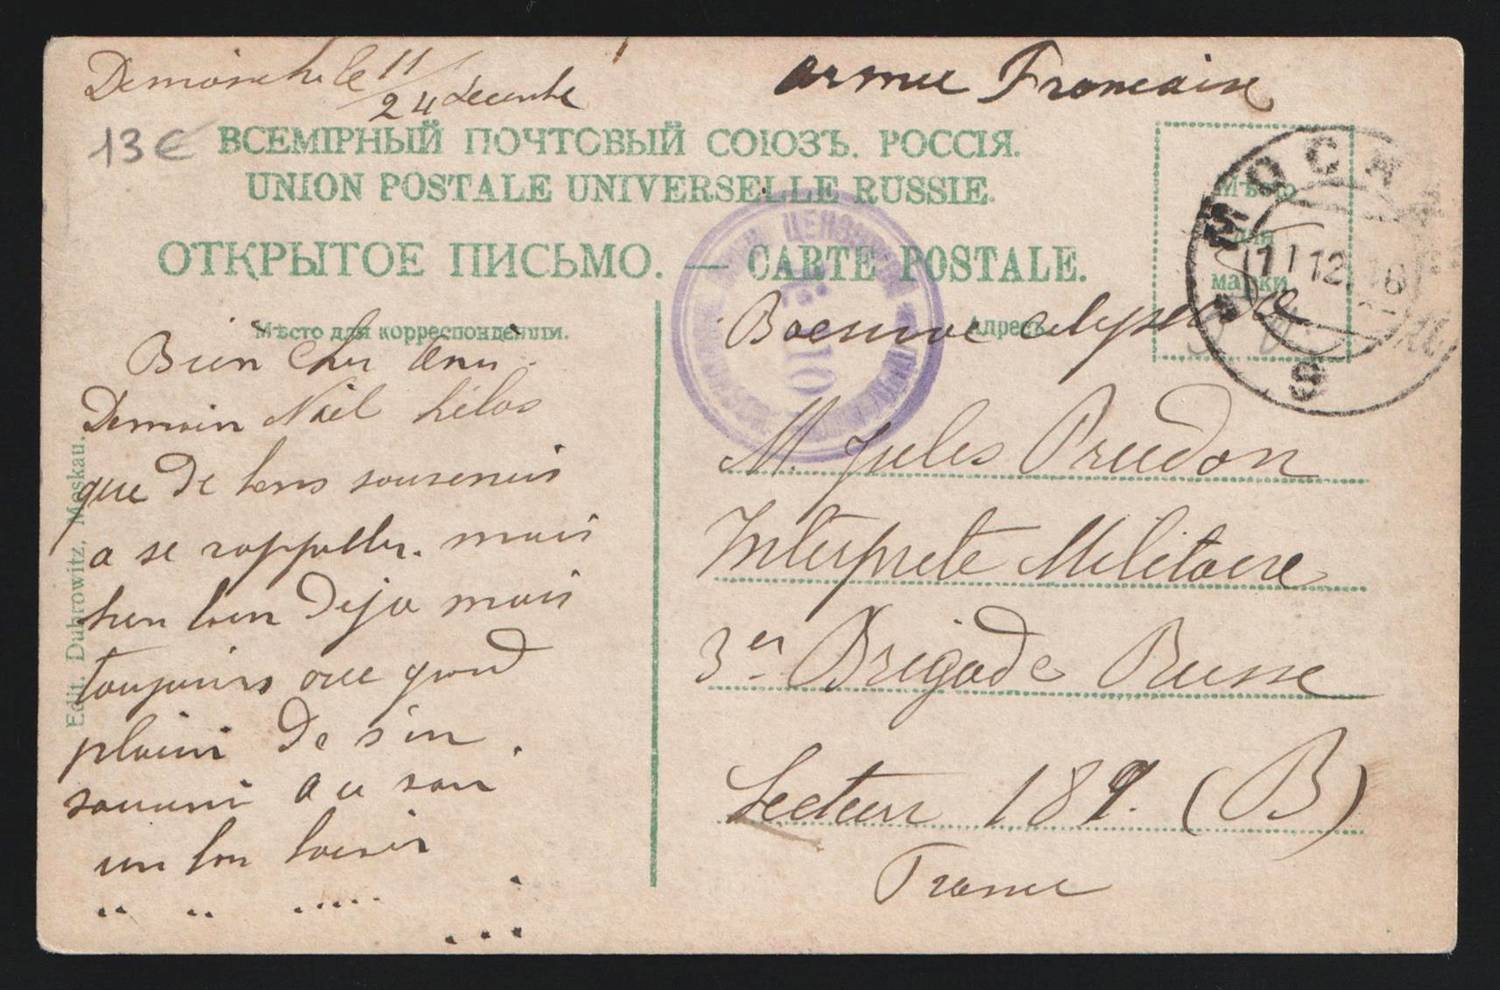 Dimanche le 11/24 decembre
armee Francaise
13€
ВСЕМІРНЫЙ ПОЧТОВЫЙ СОЮЗЪ. РОССІЯ.
UNION POSTALE UNIVERSELLE RUSSIE.
ОТКРЫТОЕ ПИСЬМО. — CARTE POSTALE.
Мѣсто для корреспонденціи.
Адресъ.
Мѣсто
для
марки
МОСКВА
11 12 16
8
110
Bien cher ami.
Demain Noël hélas
que de bons souvenirs
a se rappeller. mais
bien loin deja mais
toujours avec grand
plaisir de s'en
souvenir au soir
un bon baiser
.. .. .....
...
M. Jules Prudon
Interprete Militaire
3er Brigade Russe
Secteur 189. (B)
France
Edit. Dubrowitz, Moskau.